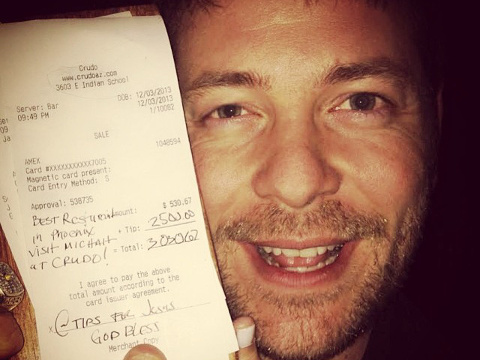 Crudo
www.crudoaz.com
3603 E Indian School
DOB: 12/03/2013
Server: Bar 12/03/2013
09:49 PM 1/10082
SALE
AMEX 1048594
Card #XXXXXXXXXXX7005
Magnetic card present:
Card Entry Method: S
Approval: 538735
Amount: $ 530.67
BEST RESTAURANT
IN PHOENIX + Tip: 2500.00
VISIT MICHAEL = Total: 3030.67
AT CRUDO!
I agree to pay the above
total amount according to the
card issuer agreement.
x @TIPS FOR JESUS
GOD BLESS
Merchant Copy